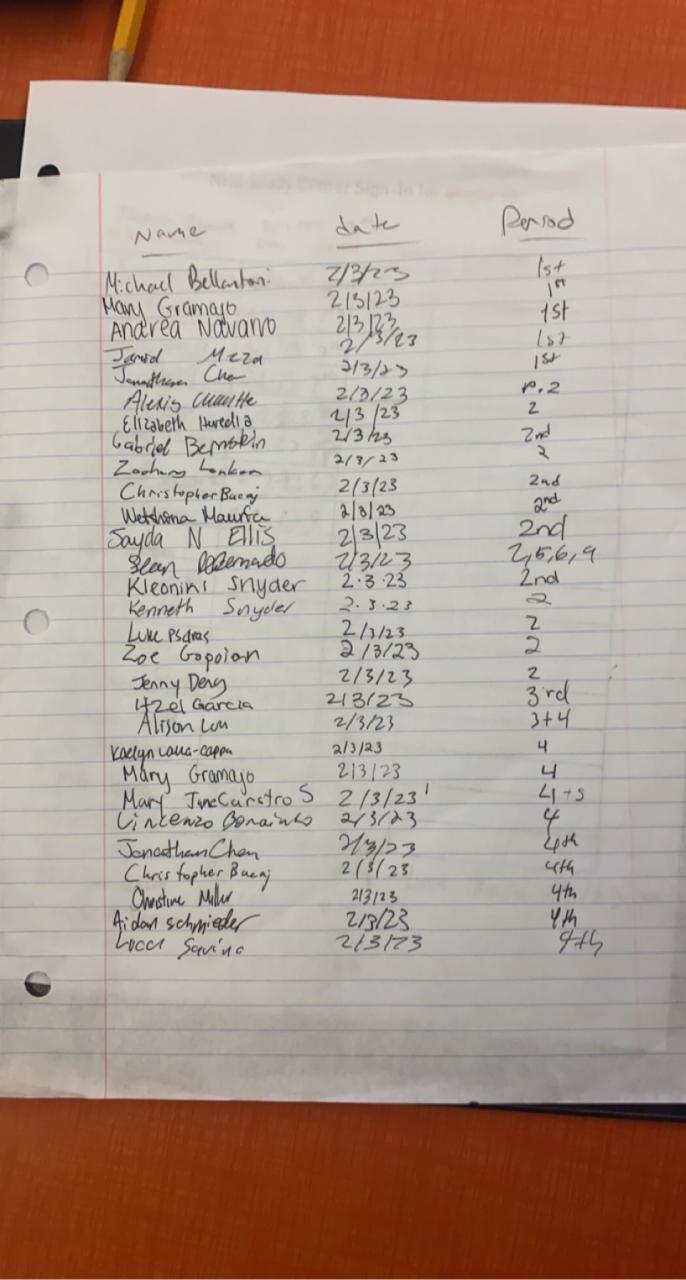 Name date Period
Michael Bellantoni 2/3/23 1st
Mary Gramajo 2/3/23 1st
Andrea Navarro 2/3/23 1st
Jarod Meza 2/3/23 1st
Jonathan Chen 2/3/23 1st
Alexis 2/3/23 P.2
Elizabeth Heredia 2/3/23 2
Gabriel Bernstein 2/3/23 2nd
Zachary 2/3/23 2
Christopher Bacaj 2/3/23 2nd
2/3/23 2nd
Sayda N Ellis 2/3/23 2nd
Sean 2/3/23 2,5,6,9
Kleonini Snyder 2.3.23 2nd
Kenneth Snyder 2.3.23 2
Luke Psaras 2/3/23 2
Zoe Gopoian 2/3/23 2
Jenny Deng 2/3/23 2
Itzel Garcia 2/3/23 3rd
Alison Lou 2/3/23 3+4
Kaelyn 2/3/23 4
Mary Gramajo 2/3/23 4
Mary Jane Castro S 2/3/23 4+5
Vincenzo 2/3/23 4
Jonathan Chen 2/3/23 4th
Christopher Bacaj 2/3/23 4th
Christine Miller 2/3/23 4th
Aidan Schmieder 2/3/23 4th
Lucca Savino 2/3/23 4th